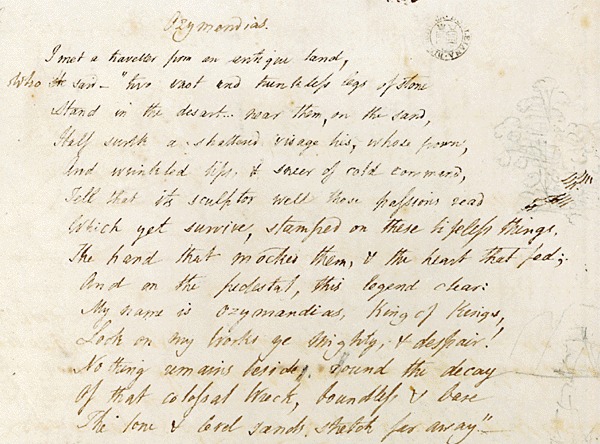 Ozymandias.
I met a traveller from an antique land,
Who said — "two vast and trunkless legs of stone
Stand in the desart... near them, on the sand,
Half sunk a shattered visage lies, whose frown,
And wrinkled lips, & sneer of cold command,
Tell that its sculptor well those passions read
Which yet survive, stamped on these lifeless things,
The hand that mocked them, & the heart that fed;
And on the pedestal, this legend clear:
My name is Ozymandias, King of Kings,
Look on my Works ye Mighty, & despair!
Nothing remains beside. round the decay
Of that colossal Wreck, boundless & bare
The lone & level sands stretch far away."—